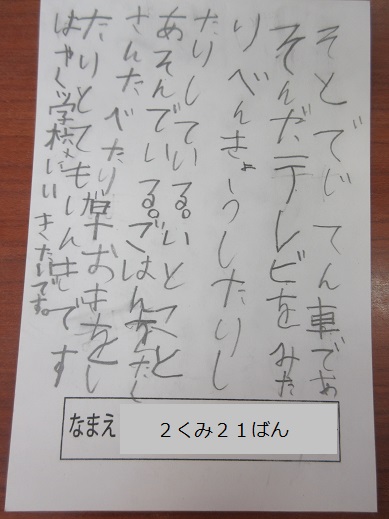 そとでじてん車であ
そんだテレビをみた
りべんきょうしたりし
たりしている。いとこと
あそんでいる。ごはんたく
さんたべたり早おきをし
たりとてもです
はやく学校にいきたいです。
なまえ ２くみ２１ばん